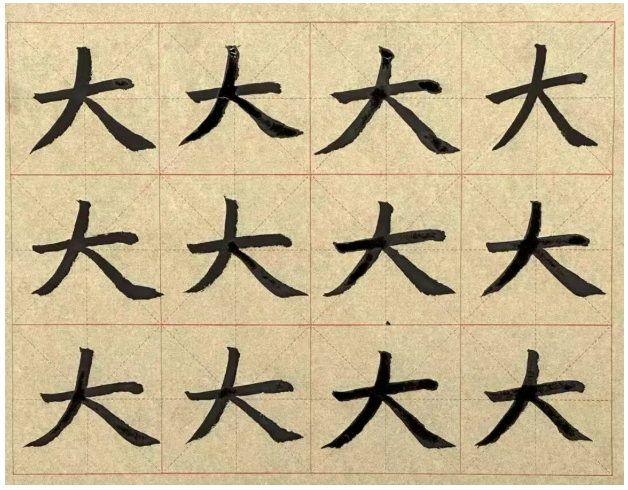 大大大大
大大大大
大大大大